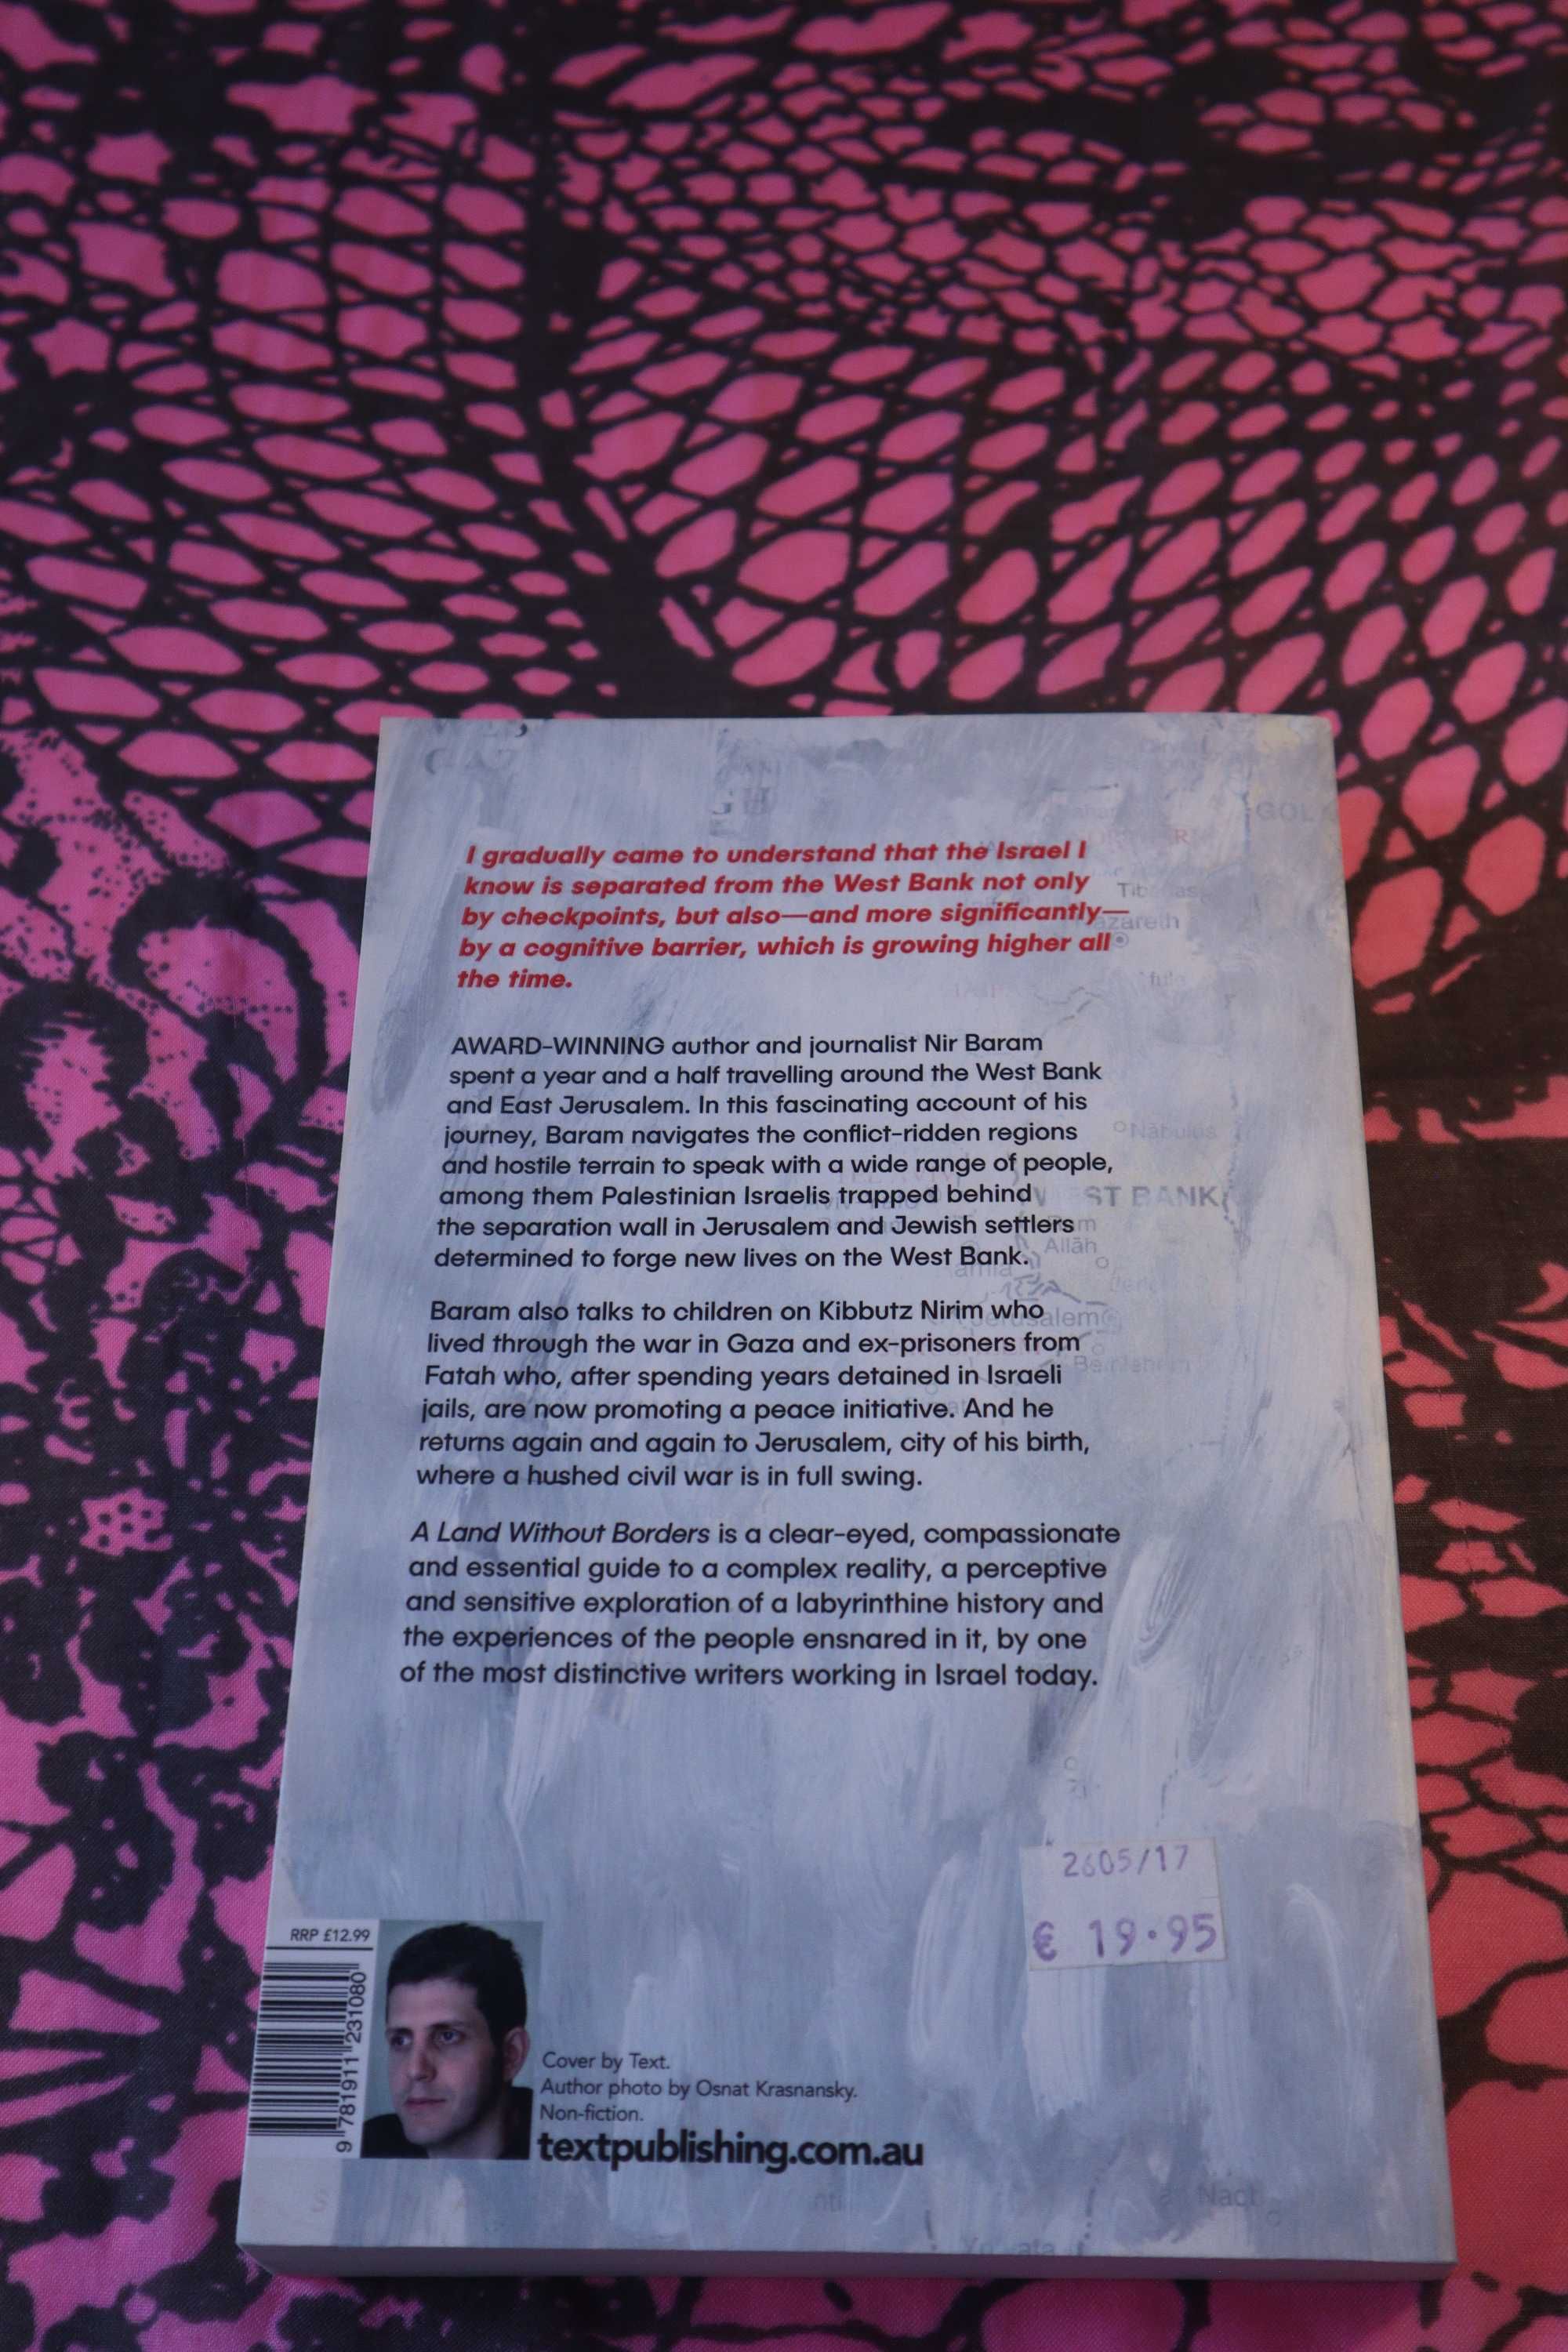 I gradually came to understand that the Israel I
know is separated from the West Bank not only
by checkpoints, but also—and more significantly—
by a cognitive barrier, which is growing higher all
the time.
AWARD-WINNING author and journalist Nir Baram
spent a year and a half travelling around the West Bank
and East Jerusalem. In this fascinating account of his
journey, Baram navigates the conflict-ridden regions
and hostile terrain to speak with a wide range of people,
among them Palestinian Israelis trapped behind
the separation wall in Jerusalem and Jewish settlers
determined to forge new lives on the West Bank.
Baram also talks to children on Kibbutz Nirim who
lived through the war in Gaza and ex-prisoners from
Fatah who, after spending years detained in Israeli
jails, are now promoting a peace initiative. And he
returns again and again to Jerusalem, city of his birth,
where a hushed civil war is in full swing.
A Land Without Borders is a clear-eyed, compassionate
and essential guide to a complex reality, a perceptive
and sensitive exploration of a labyrinthine history and
the experiences of the people ensnared in it, by one
of the most distinctive writers working in Israel today.
GOL
azareth
Nābulus
ST BANK
Allāh
2605/17
€ 19.95
RRP £12.99
9 781911 231080
Cover by Text.
Author photo by Osnat Krasnansky.
Non-fiction.
textpublishing.com.au